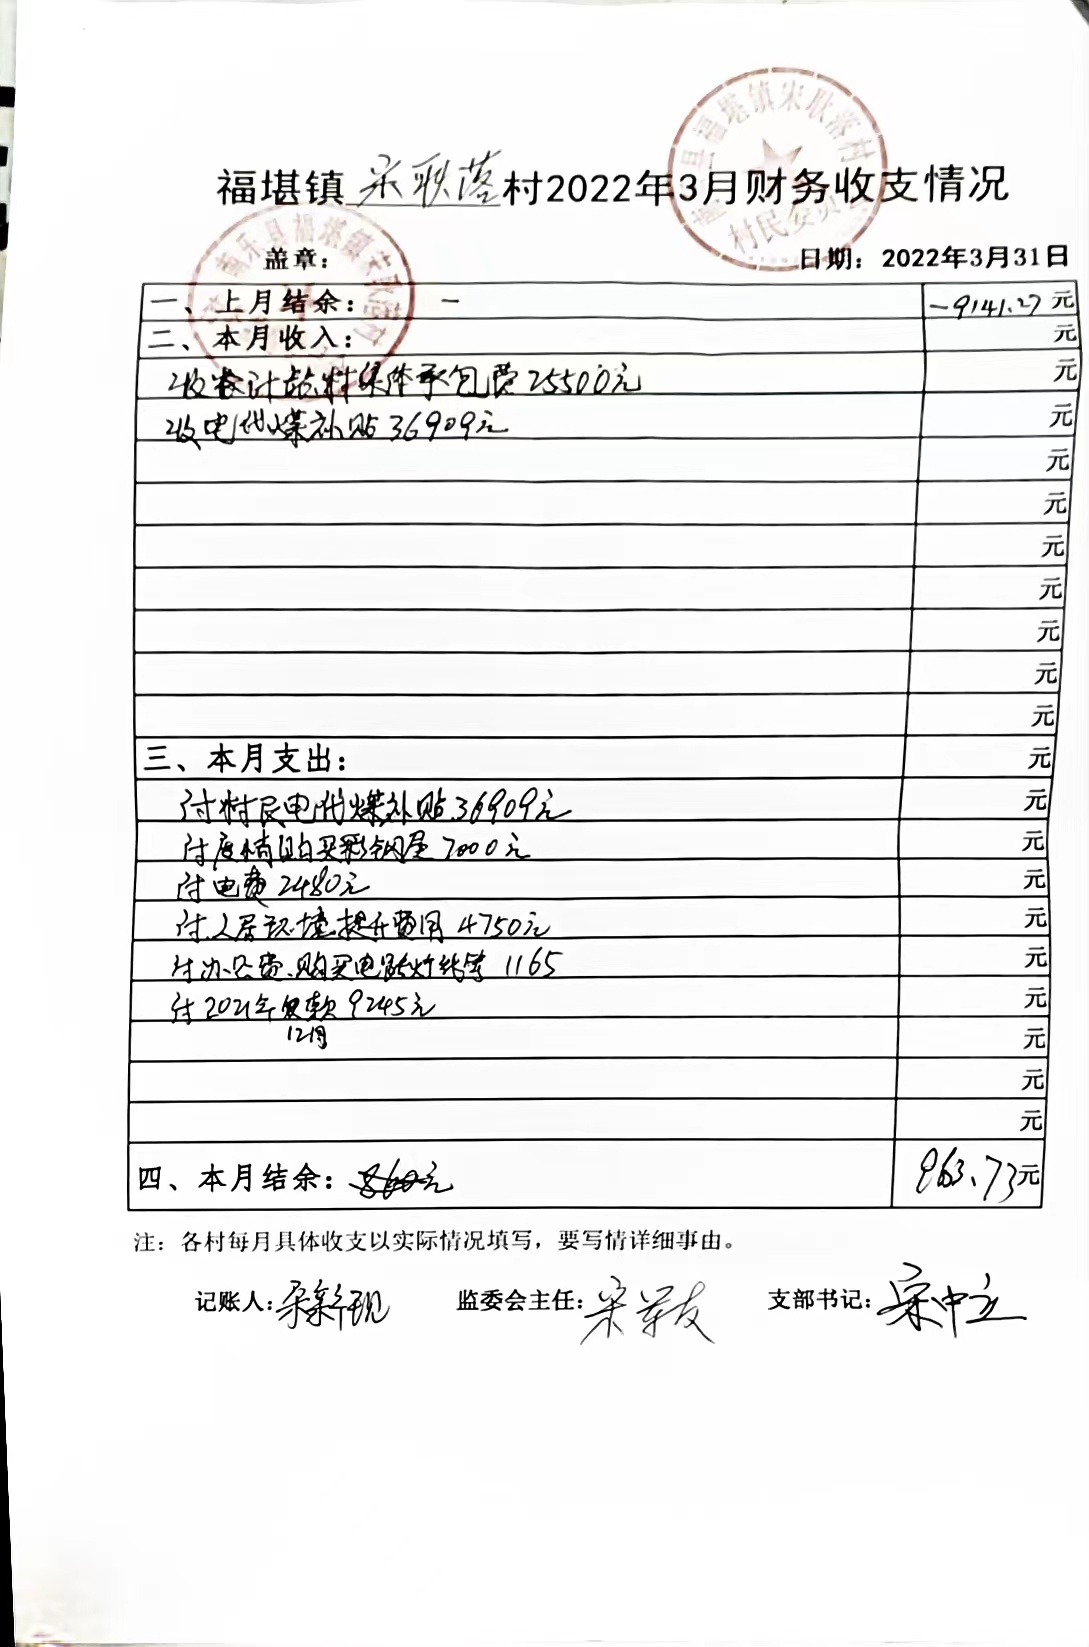 福堪镇宋耿落村2022年3月财务收支情况
南乐县福堪镇宋耿落村
村民委员会
盖章：
日期：2022年3月31日
一、上月结余： － －9141.27元
二、本月收入： 元
收 集体承包费25500元 元
收电代煤补贴36909元 元
元
元
元
元
元
元
元
三、本月支出： 元
付村民电代煤补贴36909元 元
付疫情购买彩钢屋7000元 元
付电费2480元 元
付人居环境提升费用4750元 元
付办公费、购买电路灯线等1165 元
付2021年 款9245元 元
12月 元
元
元
四、本月结余：860元 963.73元
注：各村每月具体收支以实际情况填写，要写情详细事由。
记账人：宋 现 监委会主任：宋 友 支部书记：宋中立